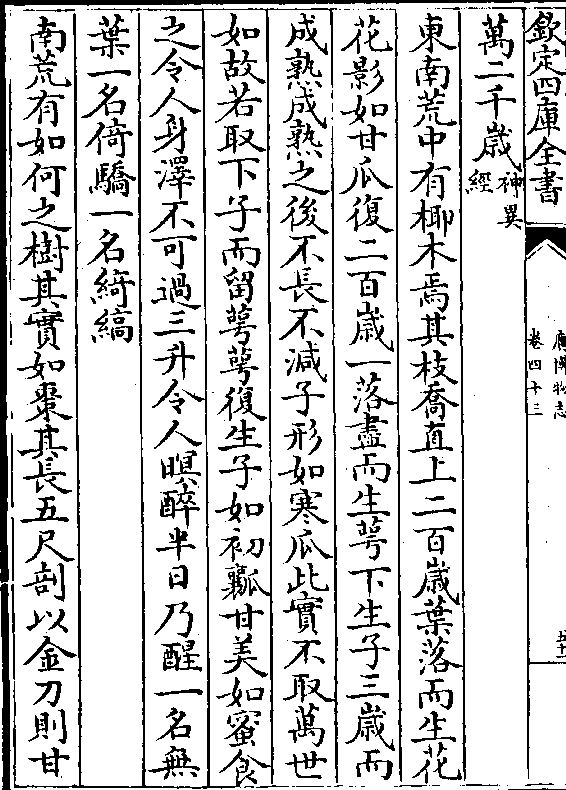 欽定四庫全書
廣博物志
卷四十三
五十
萬二千歲神異經
東南荒中有椰木焉其枝喬直上二百歲葉落而生花
花影如甘瓜復二百歲一落盡而生萼下生子三歲而
成熟成熟之後不長不減子形如寒瓜此實不取萬世
如故若取下子而留萼萼復生子如初瓤甘美如蜜食
之令人身澤不可過三升令人瞑醉半日乃醒一名無
葉一名倚驕一名綺縞
南荒有如何之樹其實如棗其長五尺剖以金刀則甘